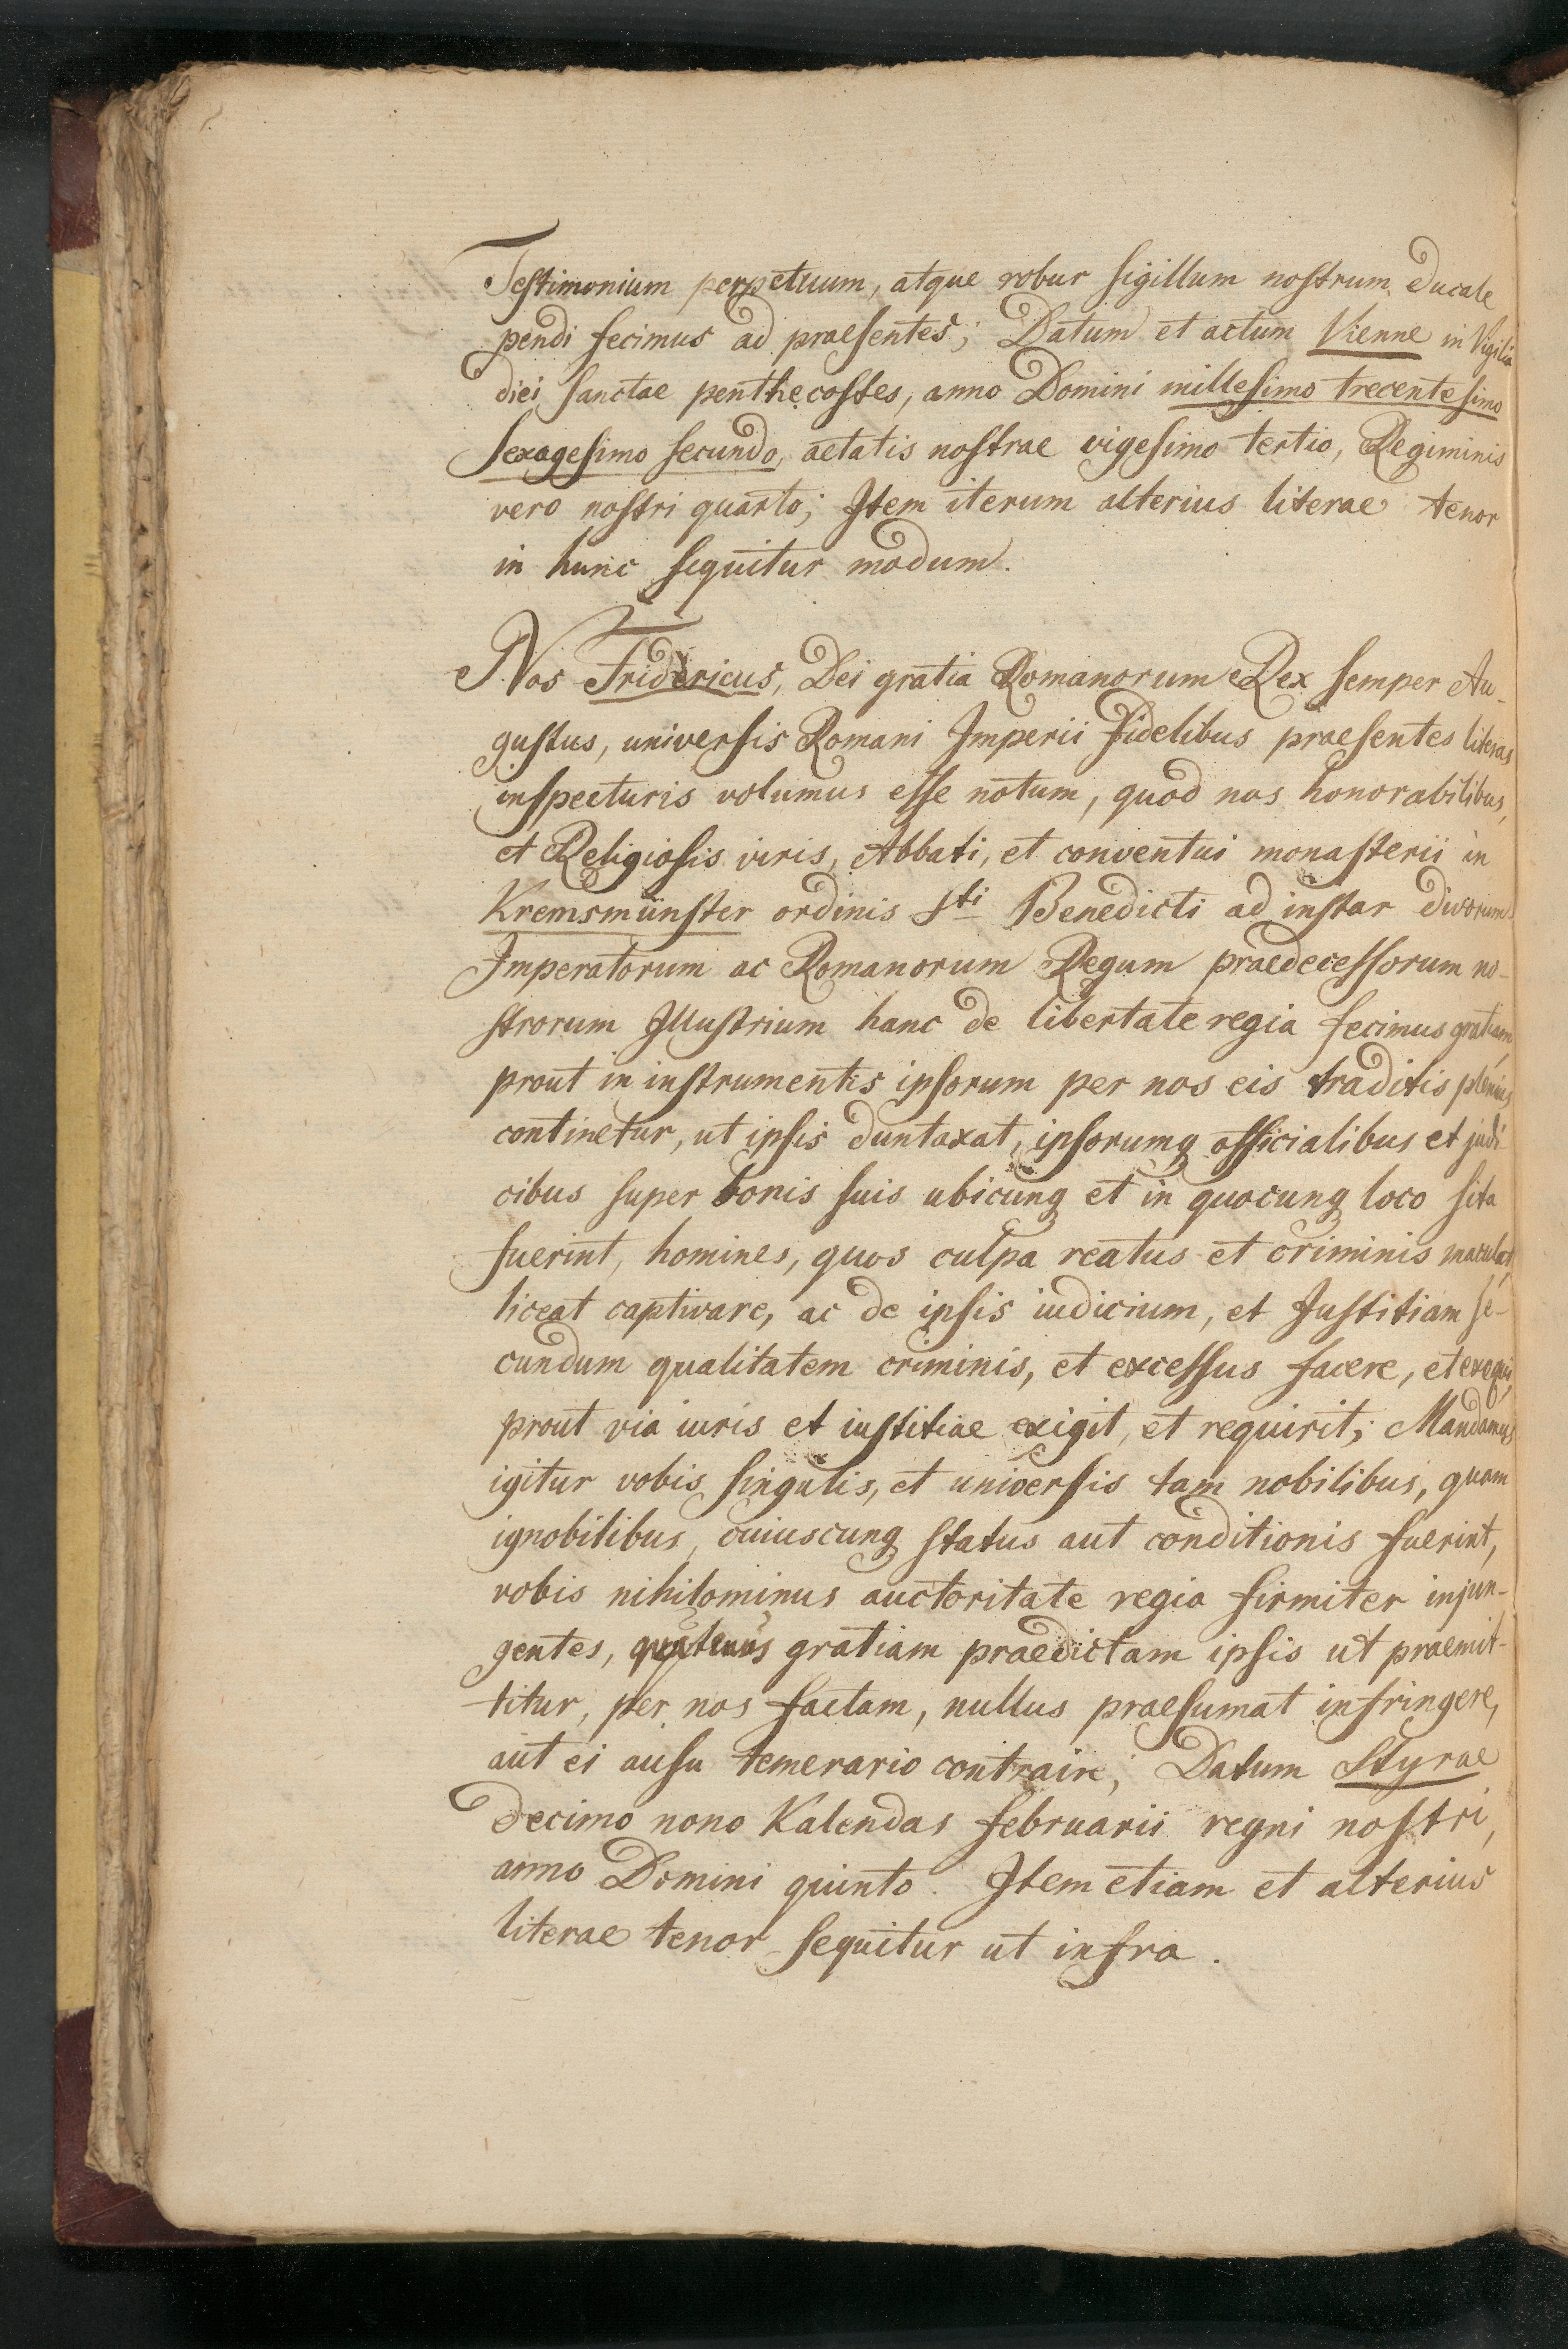 Testimonium perpetuum, atque robur sigillum nostrum ducale
pendi fecimus ad praesentes; Datum et actum Vienne in Vigilia
diei sanctae penthecostes, anno Domini millesimo trecentesimo
sexagesimo secundo, aetatis nostrae vigesimo tertio, Regiminis
vero nostri quarto; Item iterum alterius literae tenor
in hunc sequitur modum.
Nos Fridericus, Dei gratia Romanorum Rex semper Au-
gustus, universis Romani Imperii fidelibus praesentes literas
inspecturis volumus esse notum, quod nos honorabilibus,
et Religiosis viris, Abbati, et conventui monasterii in
Kremsmünster ordinis Sti Benedicti ad instar divorum
Imperatorum ac Romanorum Regum praedecessorum no-
strorum Illustrium hanc de libertate regia fecimus gratiam,
prout in instrumentis ipsorum per nos eis traditis plenius
continetur, ut ipsis duntaxat, ipsorumq officialibus et judi-
cibus super bonis suis ubicunq et in quocunq loco sita
fuerint, homines, quos culpa reatus et criminis maculat,
liceat captivare, ac de ipsis iudicium, et Justitiam se-
cundum qualitatem criminis, et excessus facere, et exequi,
prout via iuris et iustitiae exigit, et requirit; Mandamus
igitur vobis singulis, et universis tam nobilibus, quam
ignobilibus, cuiuscunq status aut conditionis fuerint,
vobis nihilominus auctoritate regia firmiter injun-
gentes, quatenus gratiam praedictam ipsis ut praemit-
titur, per nos factam, nullus praesumat infringere,
aut ei ausu temerario contraire; Datum Styrae
decimo nono Kalendas februarii regni nostri,
anno Domini quinto. Item etiam et alterius
literae tenor sequitur ut infra.